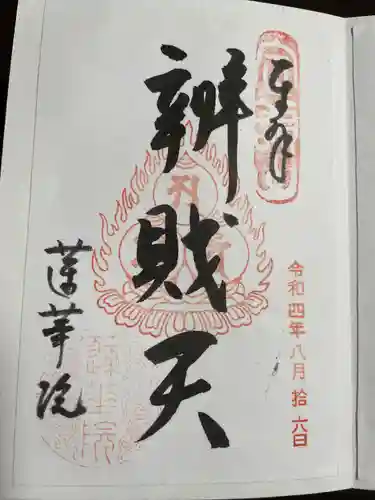 奉拝
令和四年八月拾六日
辨財天
蓮華院